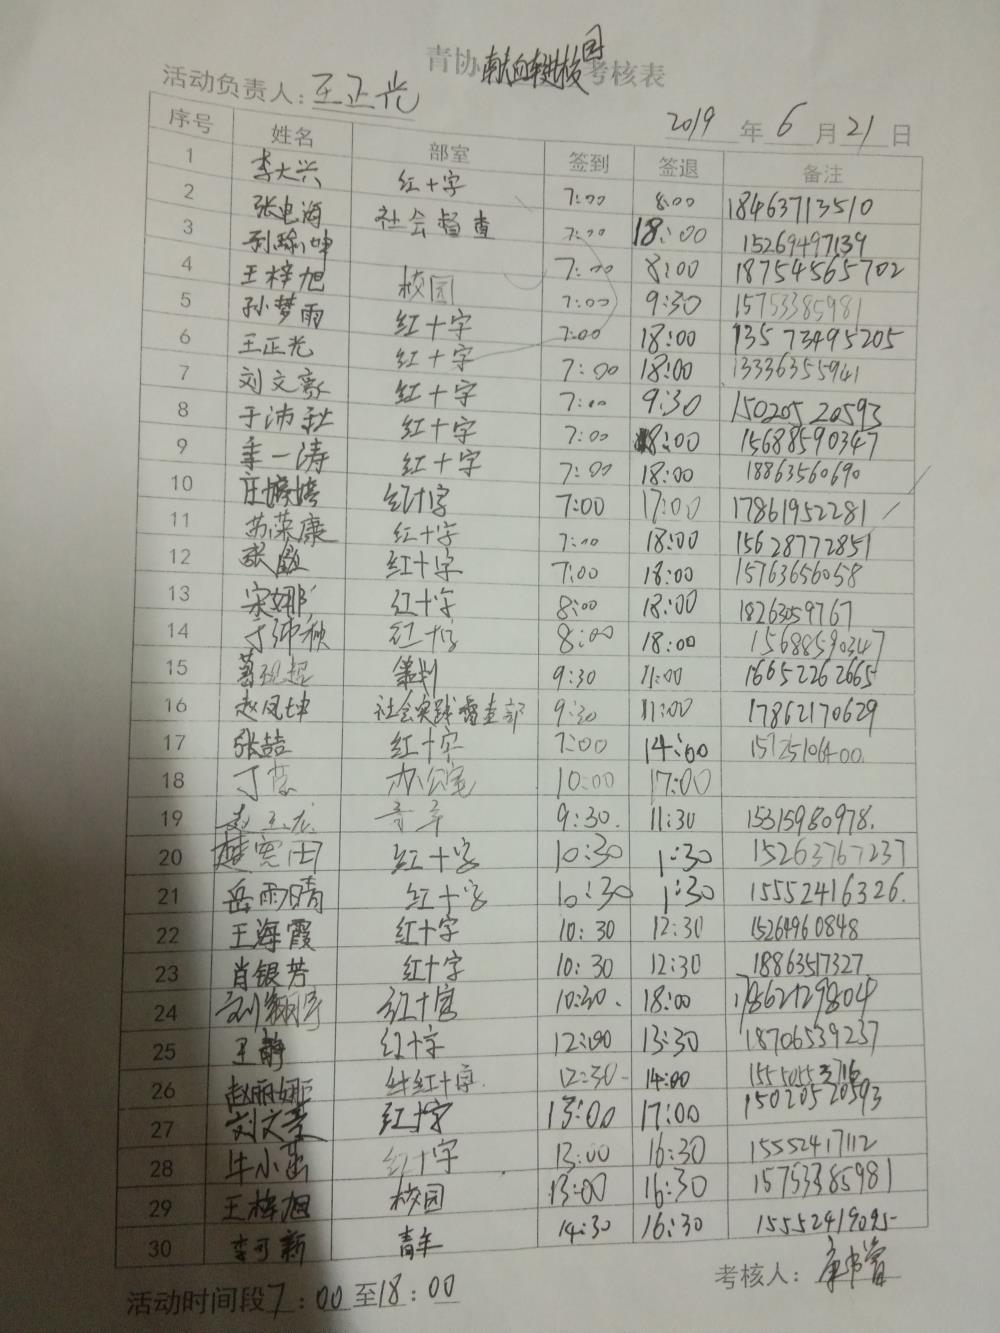 青协献血车进校园考核表
活动负责人：王正光
2019 年 6 月 21 日
序号 姓名 部室 签到 签退 备注
1 李大兴 红十字 7:00 8:00 18463713510
2 社会督查 7:00 18:00 15269497139
3 7:00 8:00 18754565702
4 王梓旭 校园 7:00 9:30 15753385981
5 孙梦雨 红十字 7:00 18:00 13573495205
6 王正光 红十字 7:00 18:00 13336355941
7 刘文豪 红十字 7:00 9:30 15020520593
8 于沛秋 红十字 7:00 18:00 15688590347
9 李一涛 红十字 7:00 18:00 18863560690
10 庄婷婷 红十字 7:00 17:00 17861952281
11 苏荣康 红十字 7:00 18:00 15628772851
12 张 红十字 7:00 18:00 15763656058
13 宋娜 红十字 8:00 18:00 18263059767
14 于沛秋 红十字 8:00 18:00 15688590347
15 葛现超 策划 9:30 11:00 16652262665
16 赵凤坤 社会实践督查部 9:30 11:00 17862170629
17 张喆 红十字 7:00 14:00 15725106400
18 丁慧 办公室 10:00 17:00
19 青年 9:30 11:30 15315980978
20 楚宪田 红十字 10:30 1:30 15263767237
21 岳雨晴 红十字 10:30 1:30 15552416326
22 王海霞 红十字 10:30 12:30 15264960848
23 肖银芳 红十字 10:30 12:30 18863517327
24 红十字 10:30 18:00 17862129804
25 王静 红十字 12:00 13:30 18706539237
26 赵丽娜 红十字 12:30 14:00
27 刘文豪 红十字 13:00 17:00 15020520593
28 牛小 红十字 13:00 16:30 15552417112
29 王梓旭 校园 13:00 16:30 15753385981
30 李可新 青年 14:30 16:30 15552419095
活动时间段7:00至18:00
考核人：